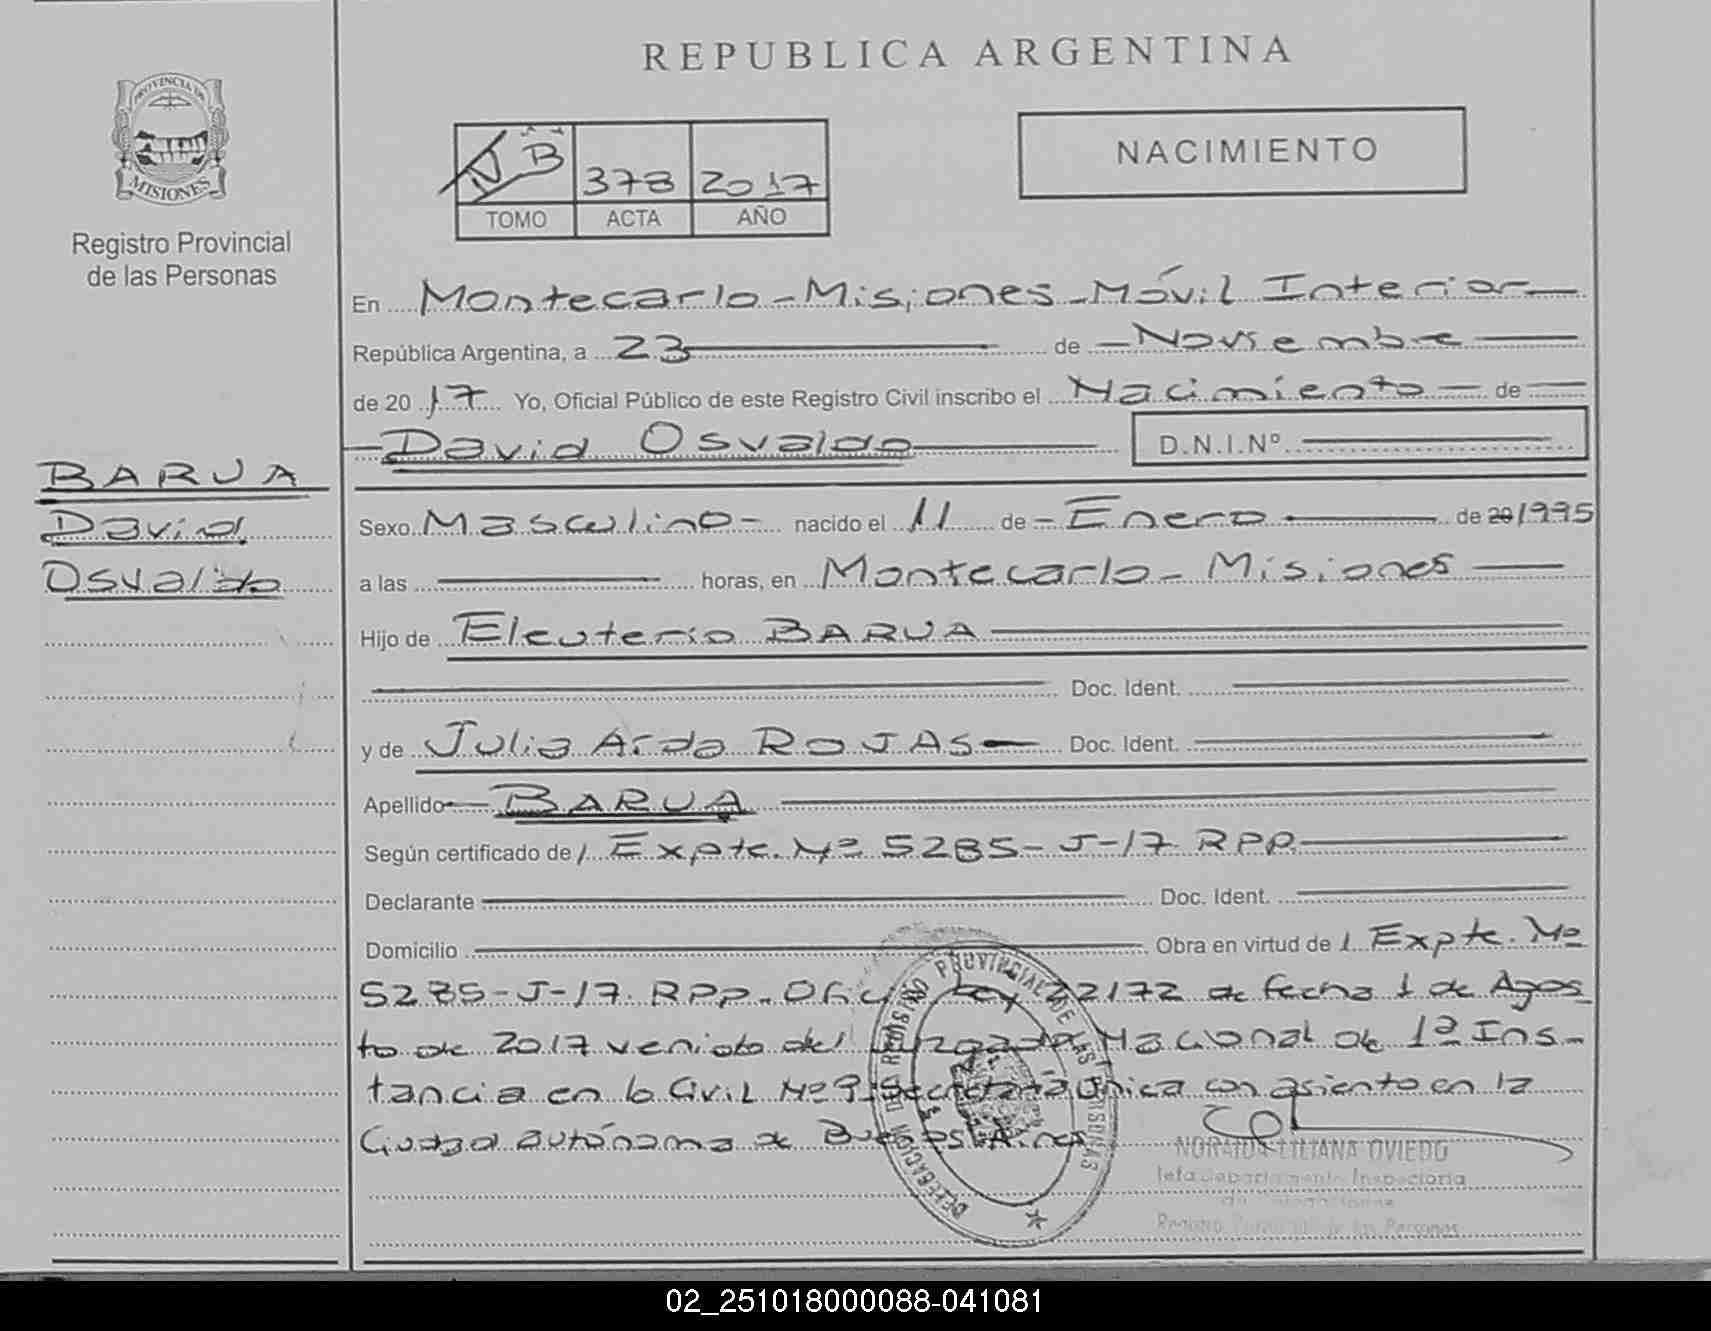 REPUBLICA ARGENTINA
PROVINCIA DE
MISIONES
Registro Provincial
de las Personas
B 378 2017
TOMO ACTA AÑO
NACIMIENTO
En Montecarlo - Misiones - Móvil Interior
República Argentina, a 23 de Noviembre
de 2017 Yo, Oficial Público de este Registro Civil inscribo el Nacimiento de
David Osvaldo D.N.I.Nº
BARUA
David
Osvaldo
Sexo Masculino - nacido el 11 de - Enero de 20 1995
a las horas, en Montecarlo - Misiones
Hijo de Eleuterio BARUA
Doc. Ident.
y de Julia Aida ROJAS Doc. Ident.
Apellido BARUA
Según certificado de / Expte. Nº 5285-J-17 RPP
Declarante Doc. Ident.
Domicilio Obra en virtud de / Expte. Nº
5285-J-17. RPP. Ley 22172 de fecha 1 de Agos
to de 2017 venido del Juzgado Nacional de 1ª Ins-
tancia en lo Civil Nº 9 Secretaría Única con asiento en la
Ciudad autónoma de Buenos Aires
DELEGACION DEL REGISTRO PROVINCIAL DE LAS PERSONAS
LILIANA OVIEDO
Jefa Departamento Inspectoria
Registro Provincial de las Personas
02_251018000088-041081